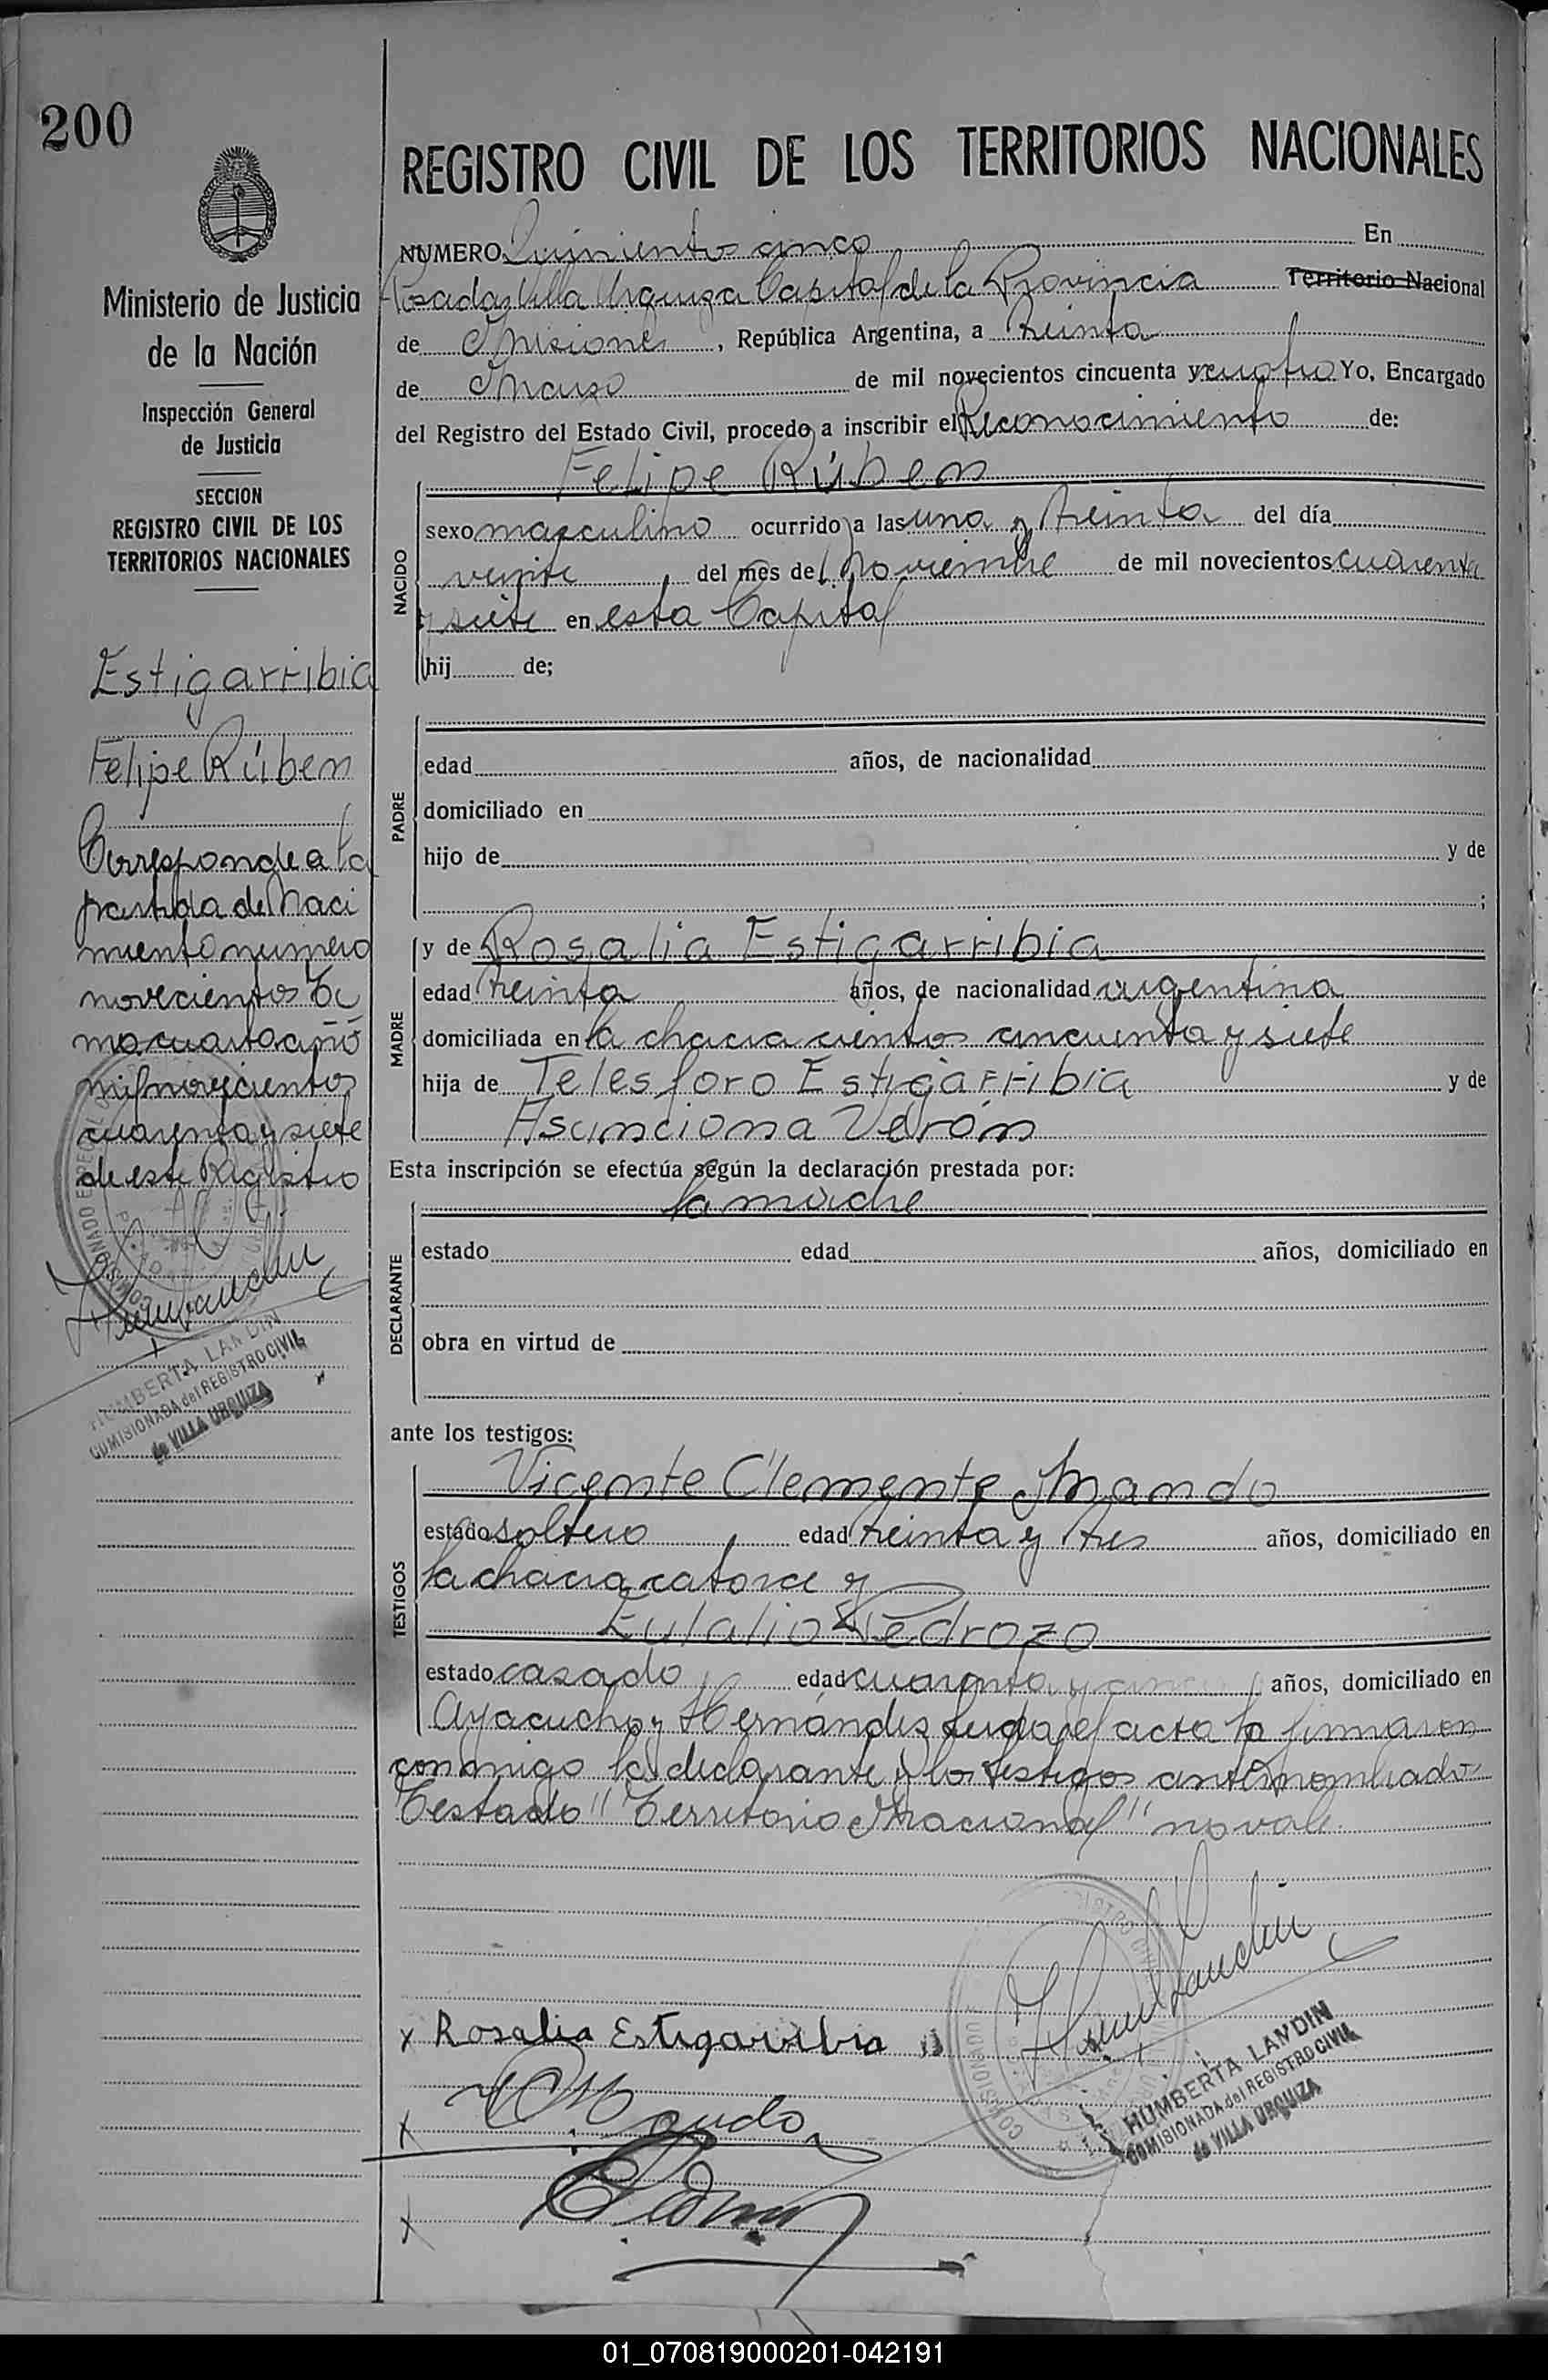 200
Ministerio de Justicia
de la Nación
Inspección General
de Justicia
SECCION
REGISTRO CIVIL DE LOS
TERRITORIOS NACIONALES
Estigarribia
Felipe Rúben
Corresponde a la
partida de Naci
miento numero
novecientos Te
mo cuarto año
mil novecientos
cuarenta y siete
de este Registro
HUMBERTA LANDIN
COMISIONADA del REGISTRO CIVIL
de VILLA URQUIZA
REGISTRO CIVIL DE LOS TERRITORIOS NACIONALES
NUMERO Quinientos cinco En
Posadas Villa Urquiza Capital de la Provincia Territorio Nacional
de Misiones, República Argentina, a treinta
de Marzo de mil novecientos cincuenta y cuatro Yo, Encargado
del Registro del Estado Civil, procedo a inscribir el Reconocimiento de:
Felipe Rúben
NACIDO
sexo masculino ocurrido a las una y treinta del día
veinte del mes de Noviembre de mil novecientos cuarenta
y siete en esta Capital
hij de;
PADRE
edad años, de nacionalidad
domiciliado en
hijo de y de
;
MADRE
y de Rosalia Estigarribia
edad treinta años, de nacionalidad argentina
domiciliada en la chacra cientos cincuenta y siete
hija de Telesforo Estigarribia y de
Asunciona Verón
Esta inscripción se efectúa según la declaración prestada por:
la madre
DECLARANTE
estado edad años, domiciliado en
obra en virtud de
ante los testigos:
TESTIGOS
Vicente Clemente Mando
estado soltero edad treinta y tres años, domiciliado en
la chacra catorce y
Eulalio Pedrozo
estado casado edad cuarenta y cinco años, domiciliado en
Ayacucho y Hernández leida el acta la firmaron
conmigo la declarante y los testigos antesnombrados
Testado "Territorio Nacional" no vale.
x Rosalia Estigarribia
x Mando
x
HUMBERTA LANDIN
COMISIONADA del REGISTRO CIVIL
de VILLA URQUIZA
01_070819000201-042191